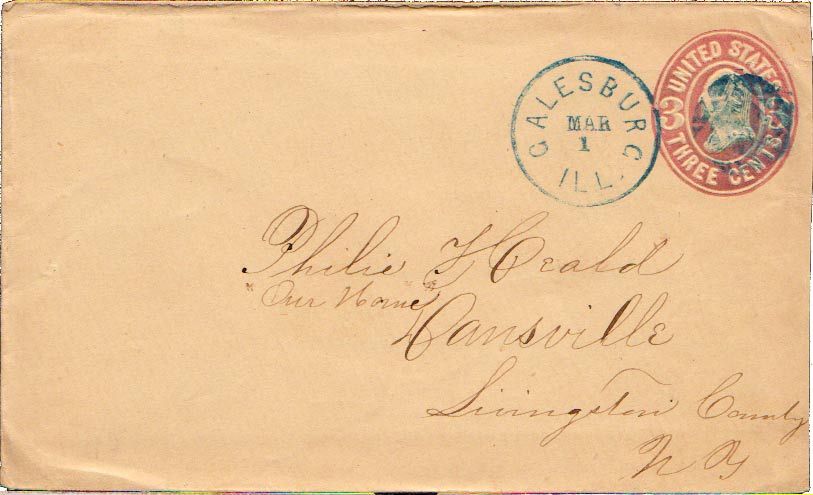 UNITED STATES
3
THREE CENTS
GALESBURG
MAR
1
ILL.
Philie Heald
"Our Home"
Dansville
Livingston County
N Y